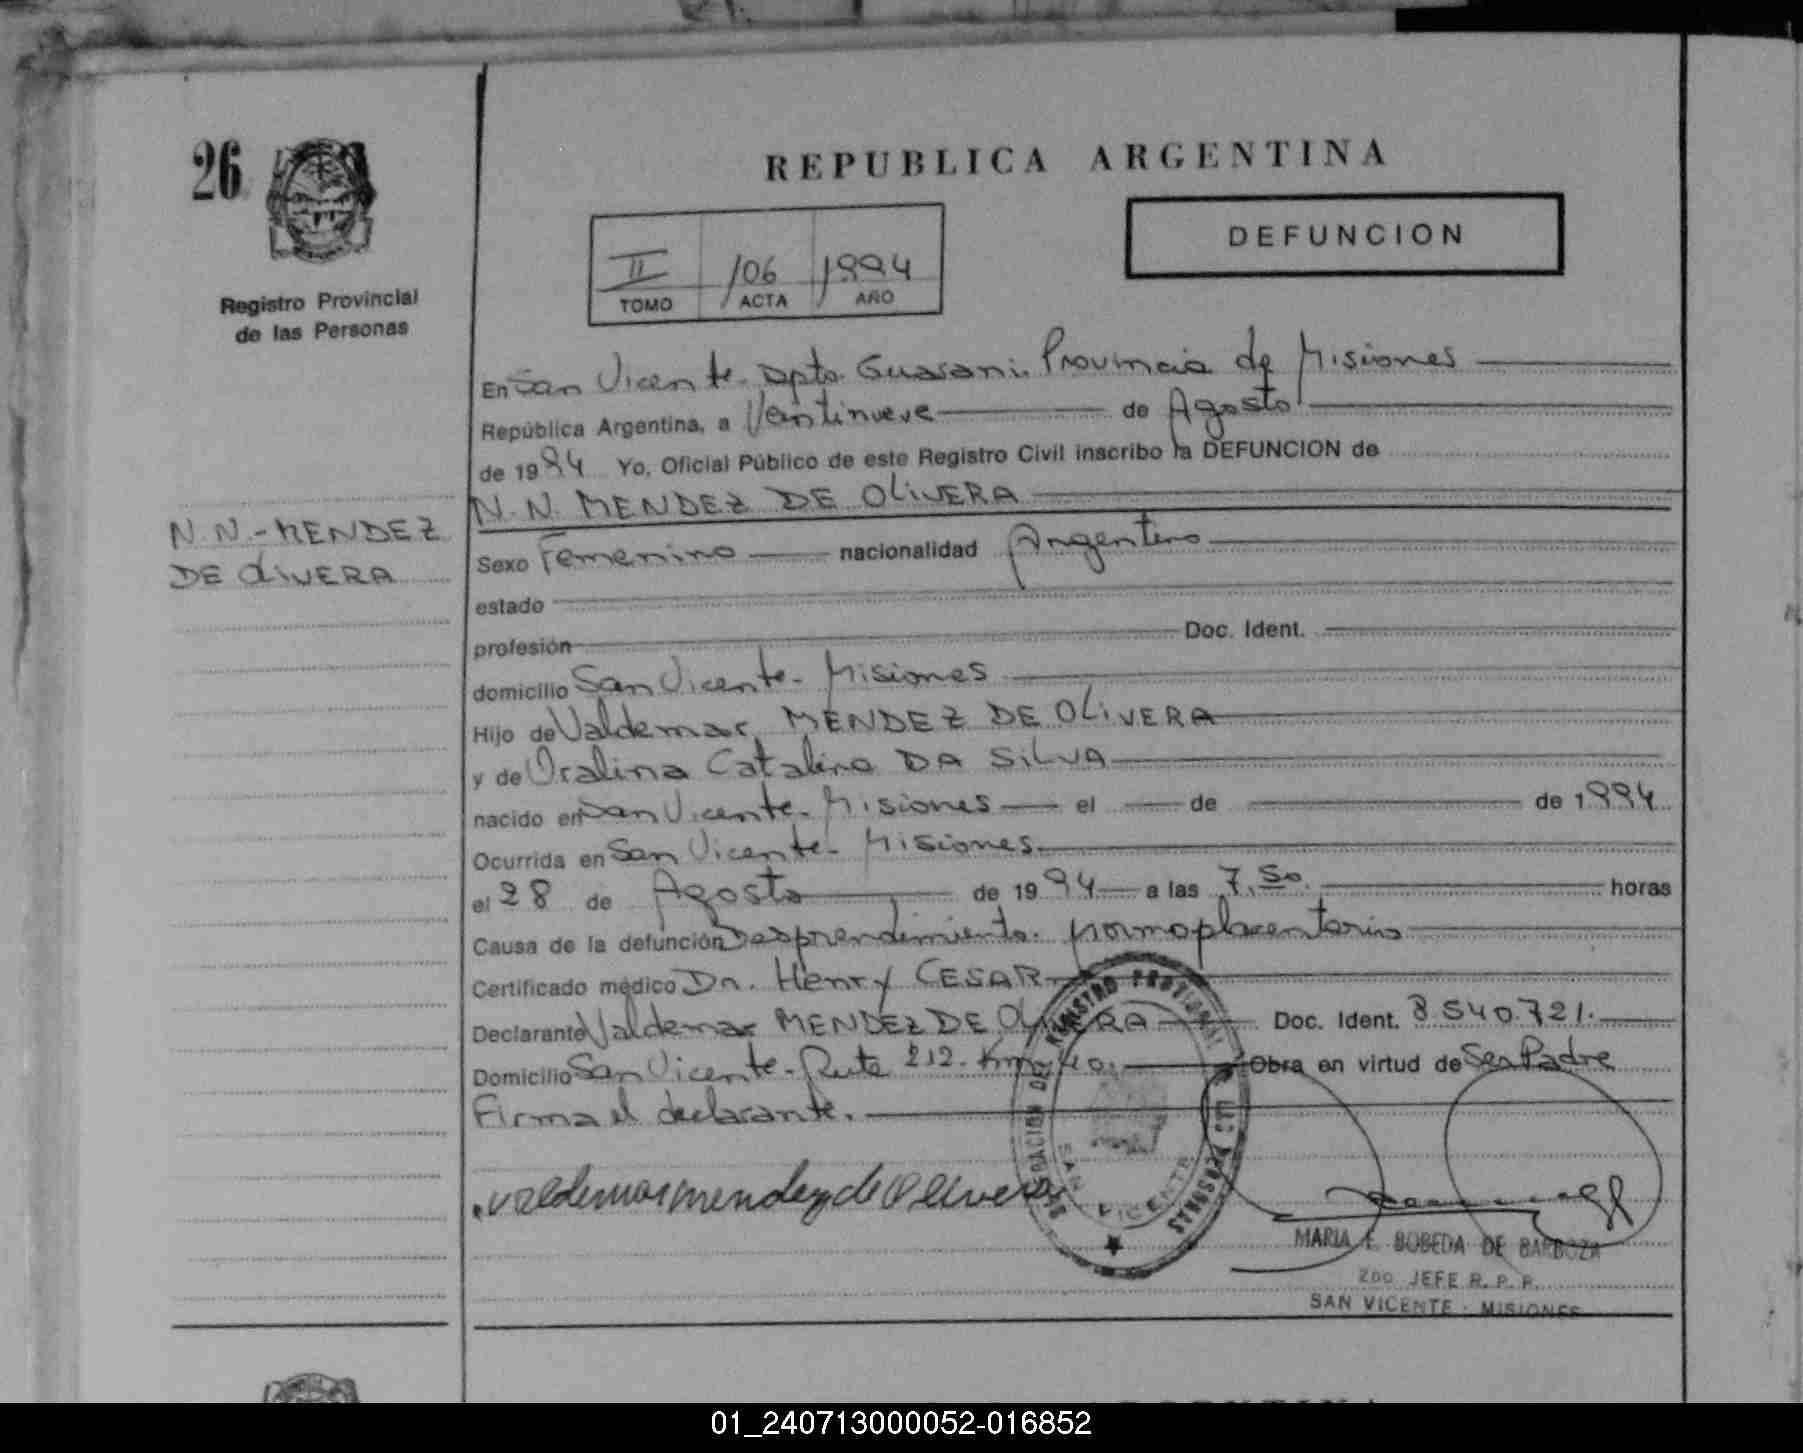 26
REPUBLICA ARGENTINA
DEFUNCION
II 106 1994
TOMO ACTA AÑO
Registro Provincial
de las Personas
En San Vicente. Dpto. Guarani. Provincia de Misiones
República Argentina, a Veintinueve de Agosto
de 1994 Yo, Oficial Público de este Registro Civil inscribo la DEFUNCION de
N.N. MENDEZ DE OLiVERA
N.N.-MENDEZ
DE OLiVERA
Sexo Femenino nacionalidad Argentino
estado
profesión Doc. Ident.
domicilio San Vicente. Misiones
Hijo de Valdemar MENDEZ DE OLiVERA
y de Oralina Catalina DA SiLVA
nacido en San Vicente. Misiones el de de 1994
Ocurrida en San Vicente. Misiones
el 28 de Agosto de 1994 a las 7.50. horas
Causa de la defunción Desprendimiento. normoplacentario
Certificado médico Dr. Henry CESAR
Declarante Valdemar MENDEZ DE OLiVERA Doc. Ident. 8.540.721.
Domicilio San Vicente. Ruta 212. Km. 40. Obra en virtud de Ser Padre
Firma el declarante.
valdemar mendez de Olivera
REGISTRO PROVINCIAL DE LAS PERSONAS
SAN VICENTE
MARIA E. BOBEDA DE BARBOZA
2DO. JEFE R. P. P.
SAN VICENTE - MISIONES
01_240713000052-016852